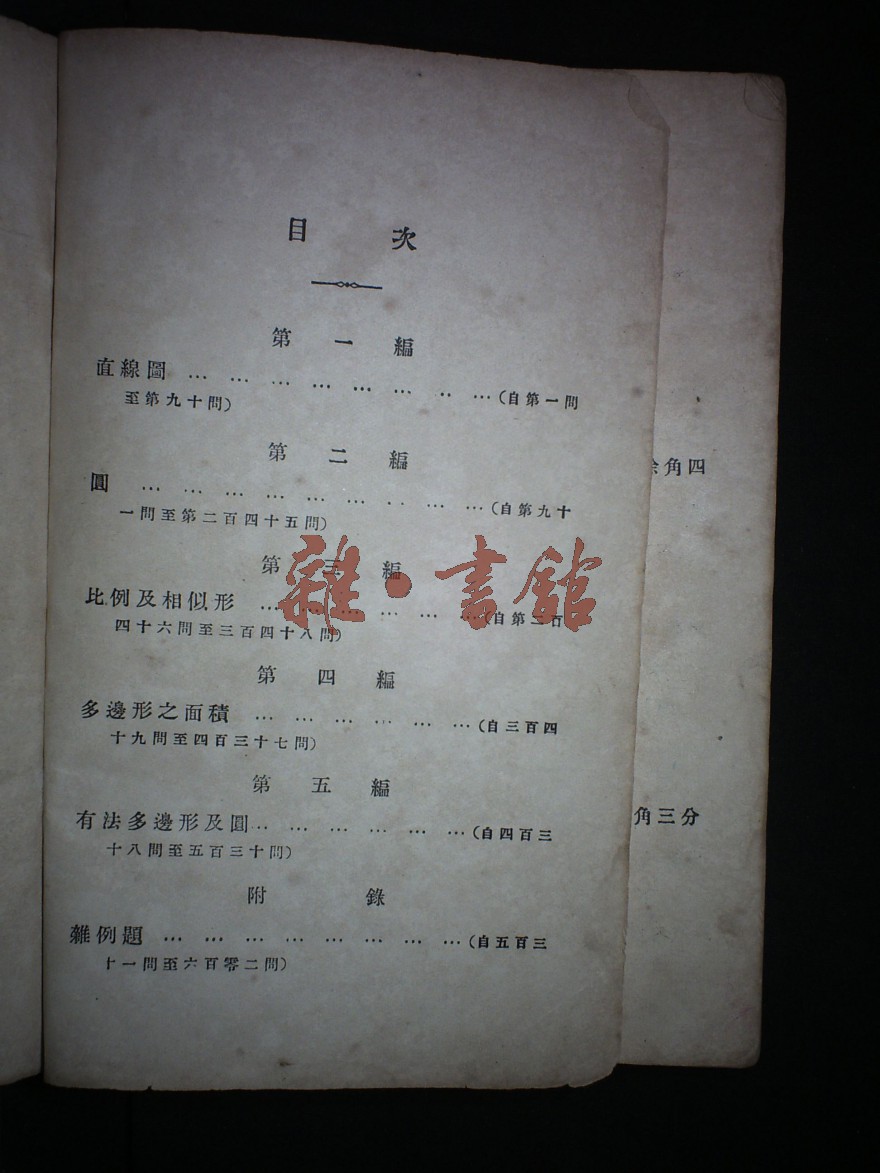 目 次
第 一 編
直線圖 … … … … … … ‥ …(自第一問
至第九十問)
第 二 編
圓 … … … … … … ‥ … …(自第九十
一問至第二百四十五問)
第 三 編
比例及相似形 … … … … … …(自第二百
四十六問至三百四十八問)
第 四 編
多邊形之面積 … … … … … …(自三百四
十九問至四百三十七問)
第 五 編
有法多邊形及圓‥ … … … … …(自四百三
十八問至五百三十問)
附 錄
雜例題 … … … … … … … …(自五百三
十一問至六百零二問)
角四
角三分
雜·書館